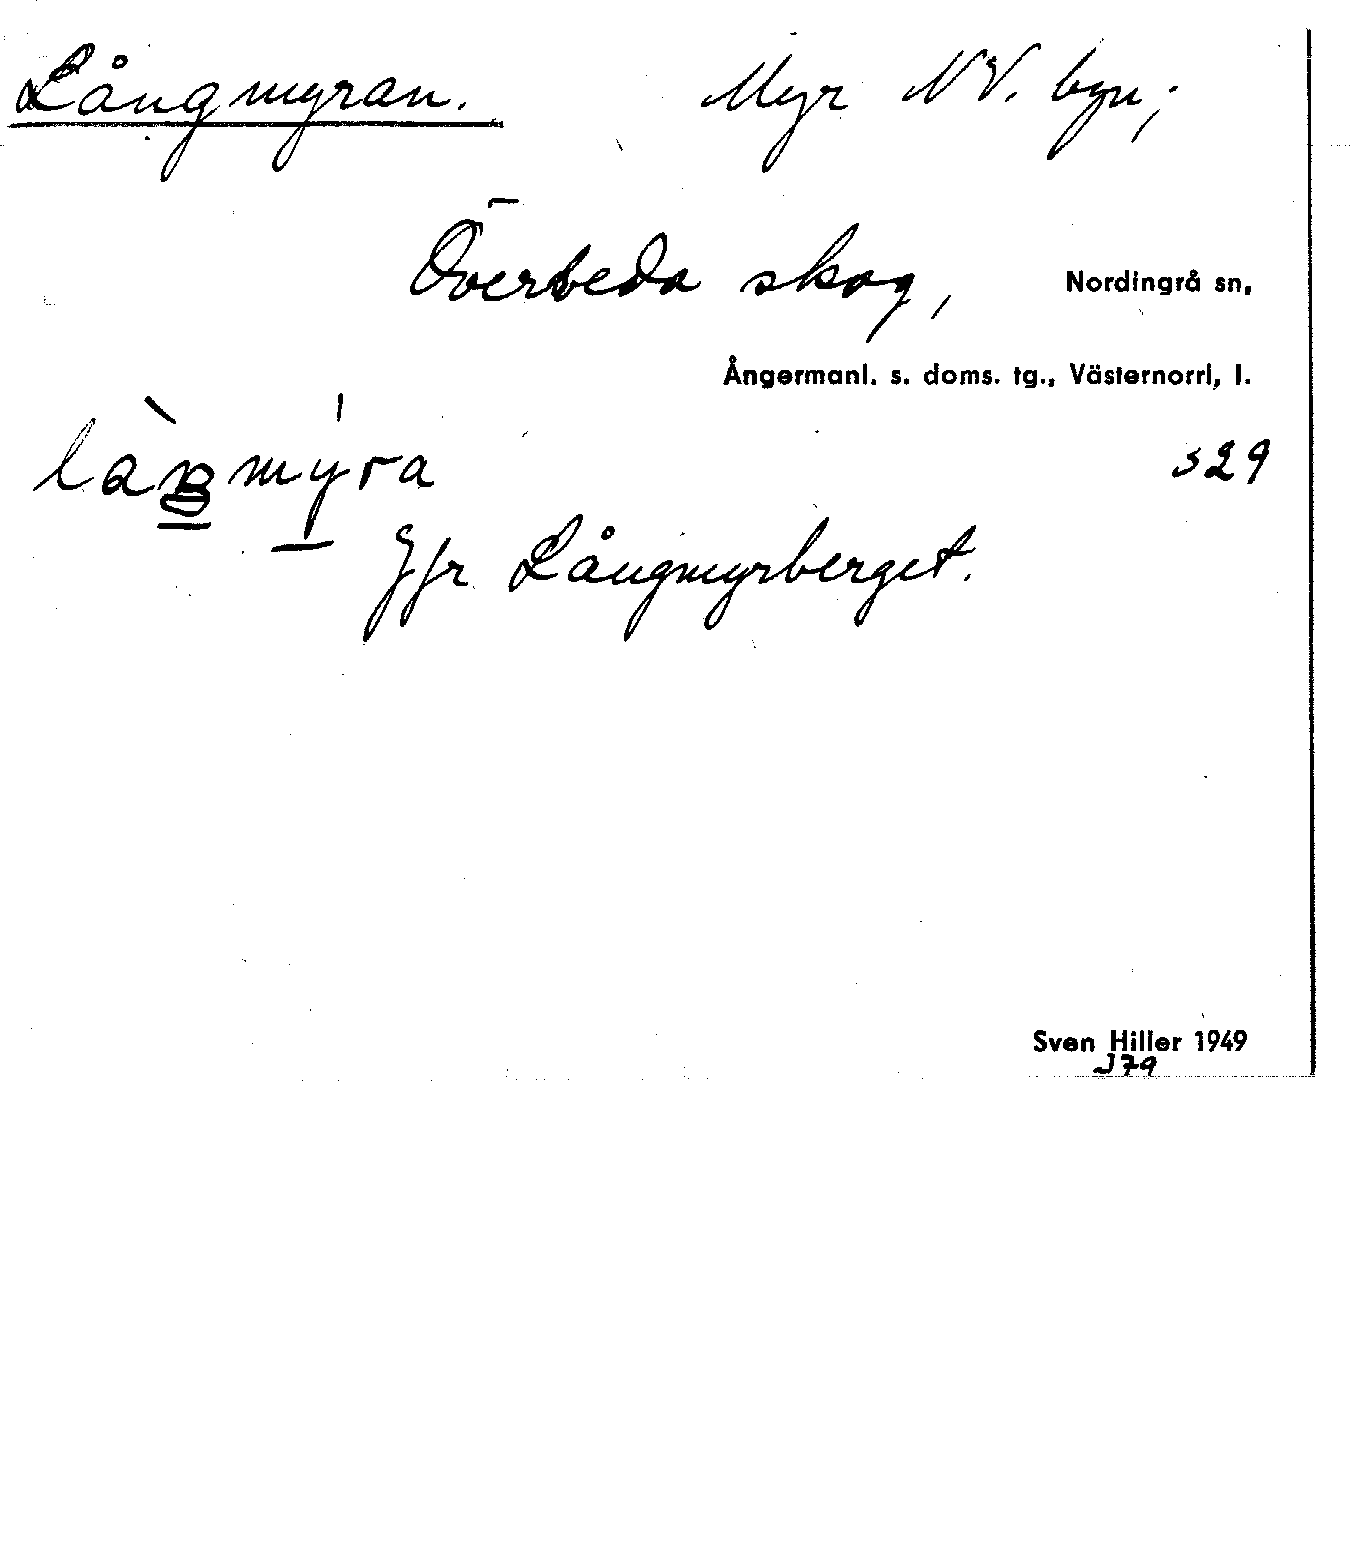 Långmyran. Myr NV. byn;
Överveda skog, Nordingrå sn,
Ångermanl. s. doms. tg., Västernorrl, l.
329
Jfr Långmyrberget.
Sven Hiller 1949
J79